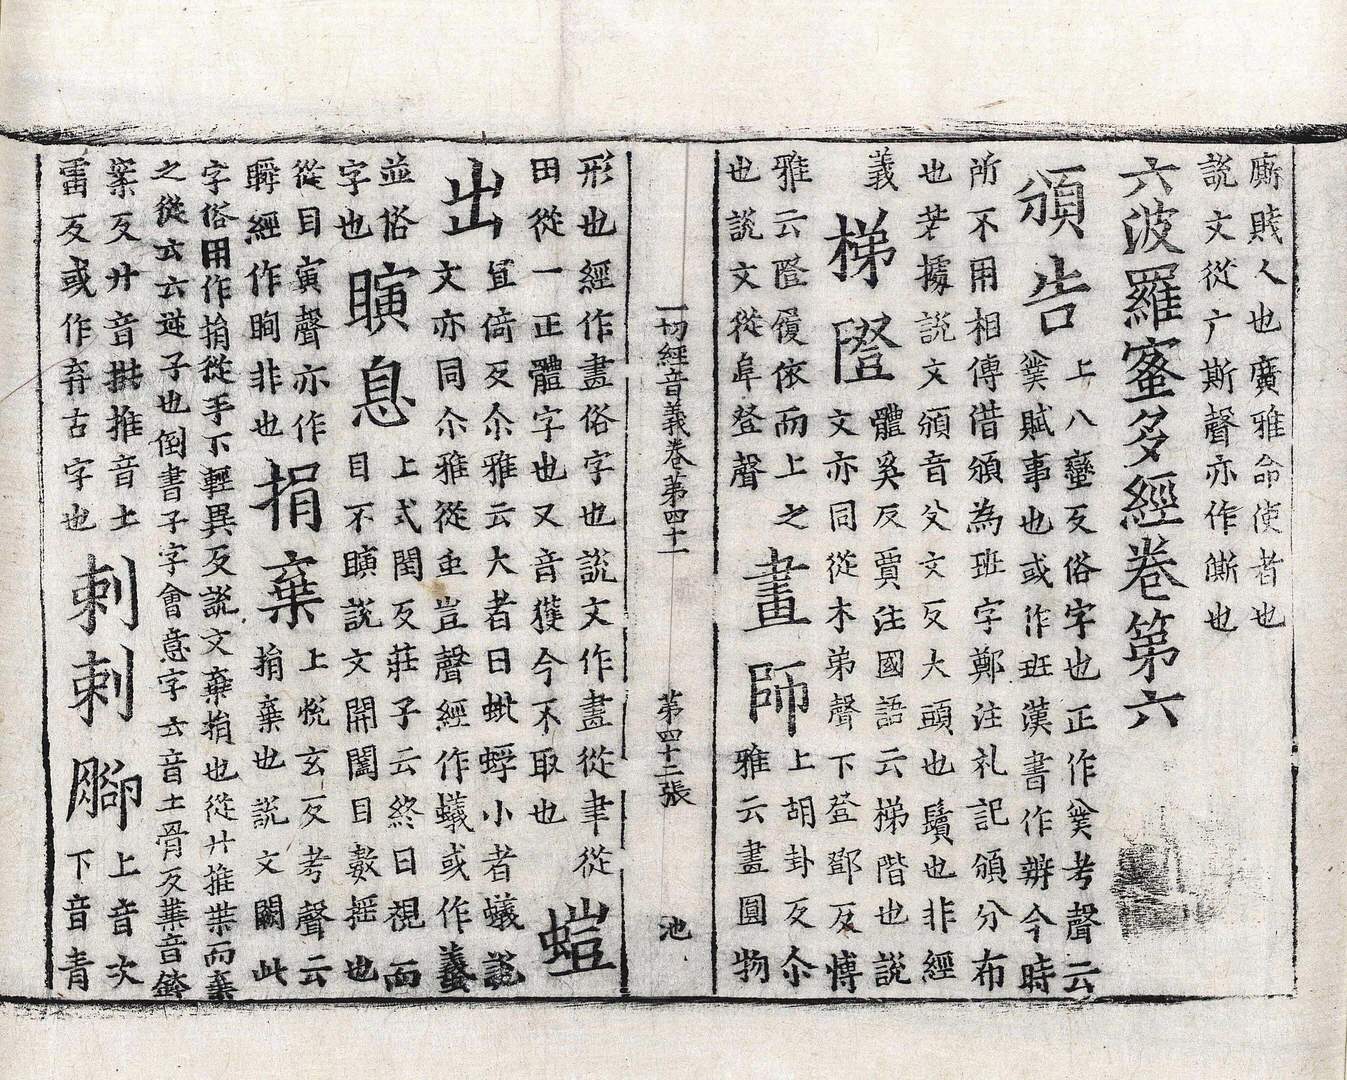 廝賤人也廣雅命使者也
說文從广斯聲亦作㒋也
六波羅蜜多經卷第六
頒告上八蠻反俗字也正作𢍱考聲云
𢍱賦事也或作班漢書作辨今時
所不用相傳借頒為班字鄭注礼記頒分布
也若據說文頒音父文反大頭也鬢也非經
義梯隥體奚反賈注國語云梯階也說
文亦同從木弟聲下登鄧反博
雅云隥履依而上之
也說文從阜登聲
畫師上胡卦反尒
雅云畫圓物
一切經音義卷第四十一 第四十二張 池
形也經作畫俗字也說文作畫從聿從
田從一正體字也又音獲今不取也螘
出宜倚反尒雅云大者曰蚍蜉小者蟻說
文亦同尒雅從虫豈聲經作蟻或作螽
並俗
字也瞚息上式閏反莊子云終日視而
目不瞚說文開闔目數搖也
從目寅聲亦作
瞬經作眴非也捐棄上悅玄反考聲云
捐棄也說文闕此
字俗用作捐從手下輕異反說文棄捐也從廾推𠦒而棄
之從𠫓𠫓逆子也倒書子字會意字𠫓音土骨反𠦒音
䉛反廾音拱推音土
雷反或作弃古字也
刺刺腳上音次
下音青